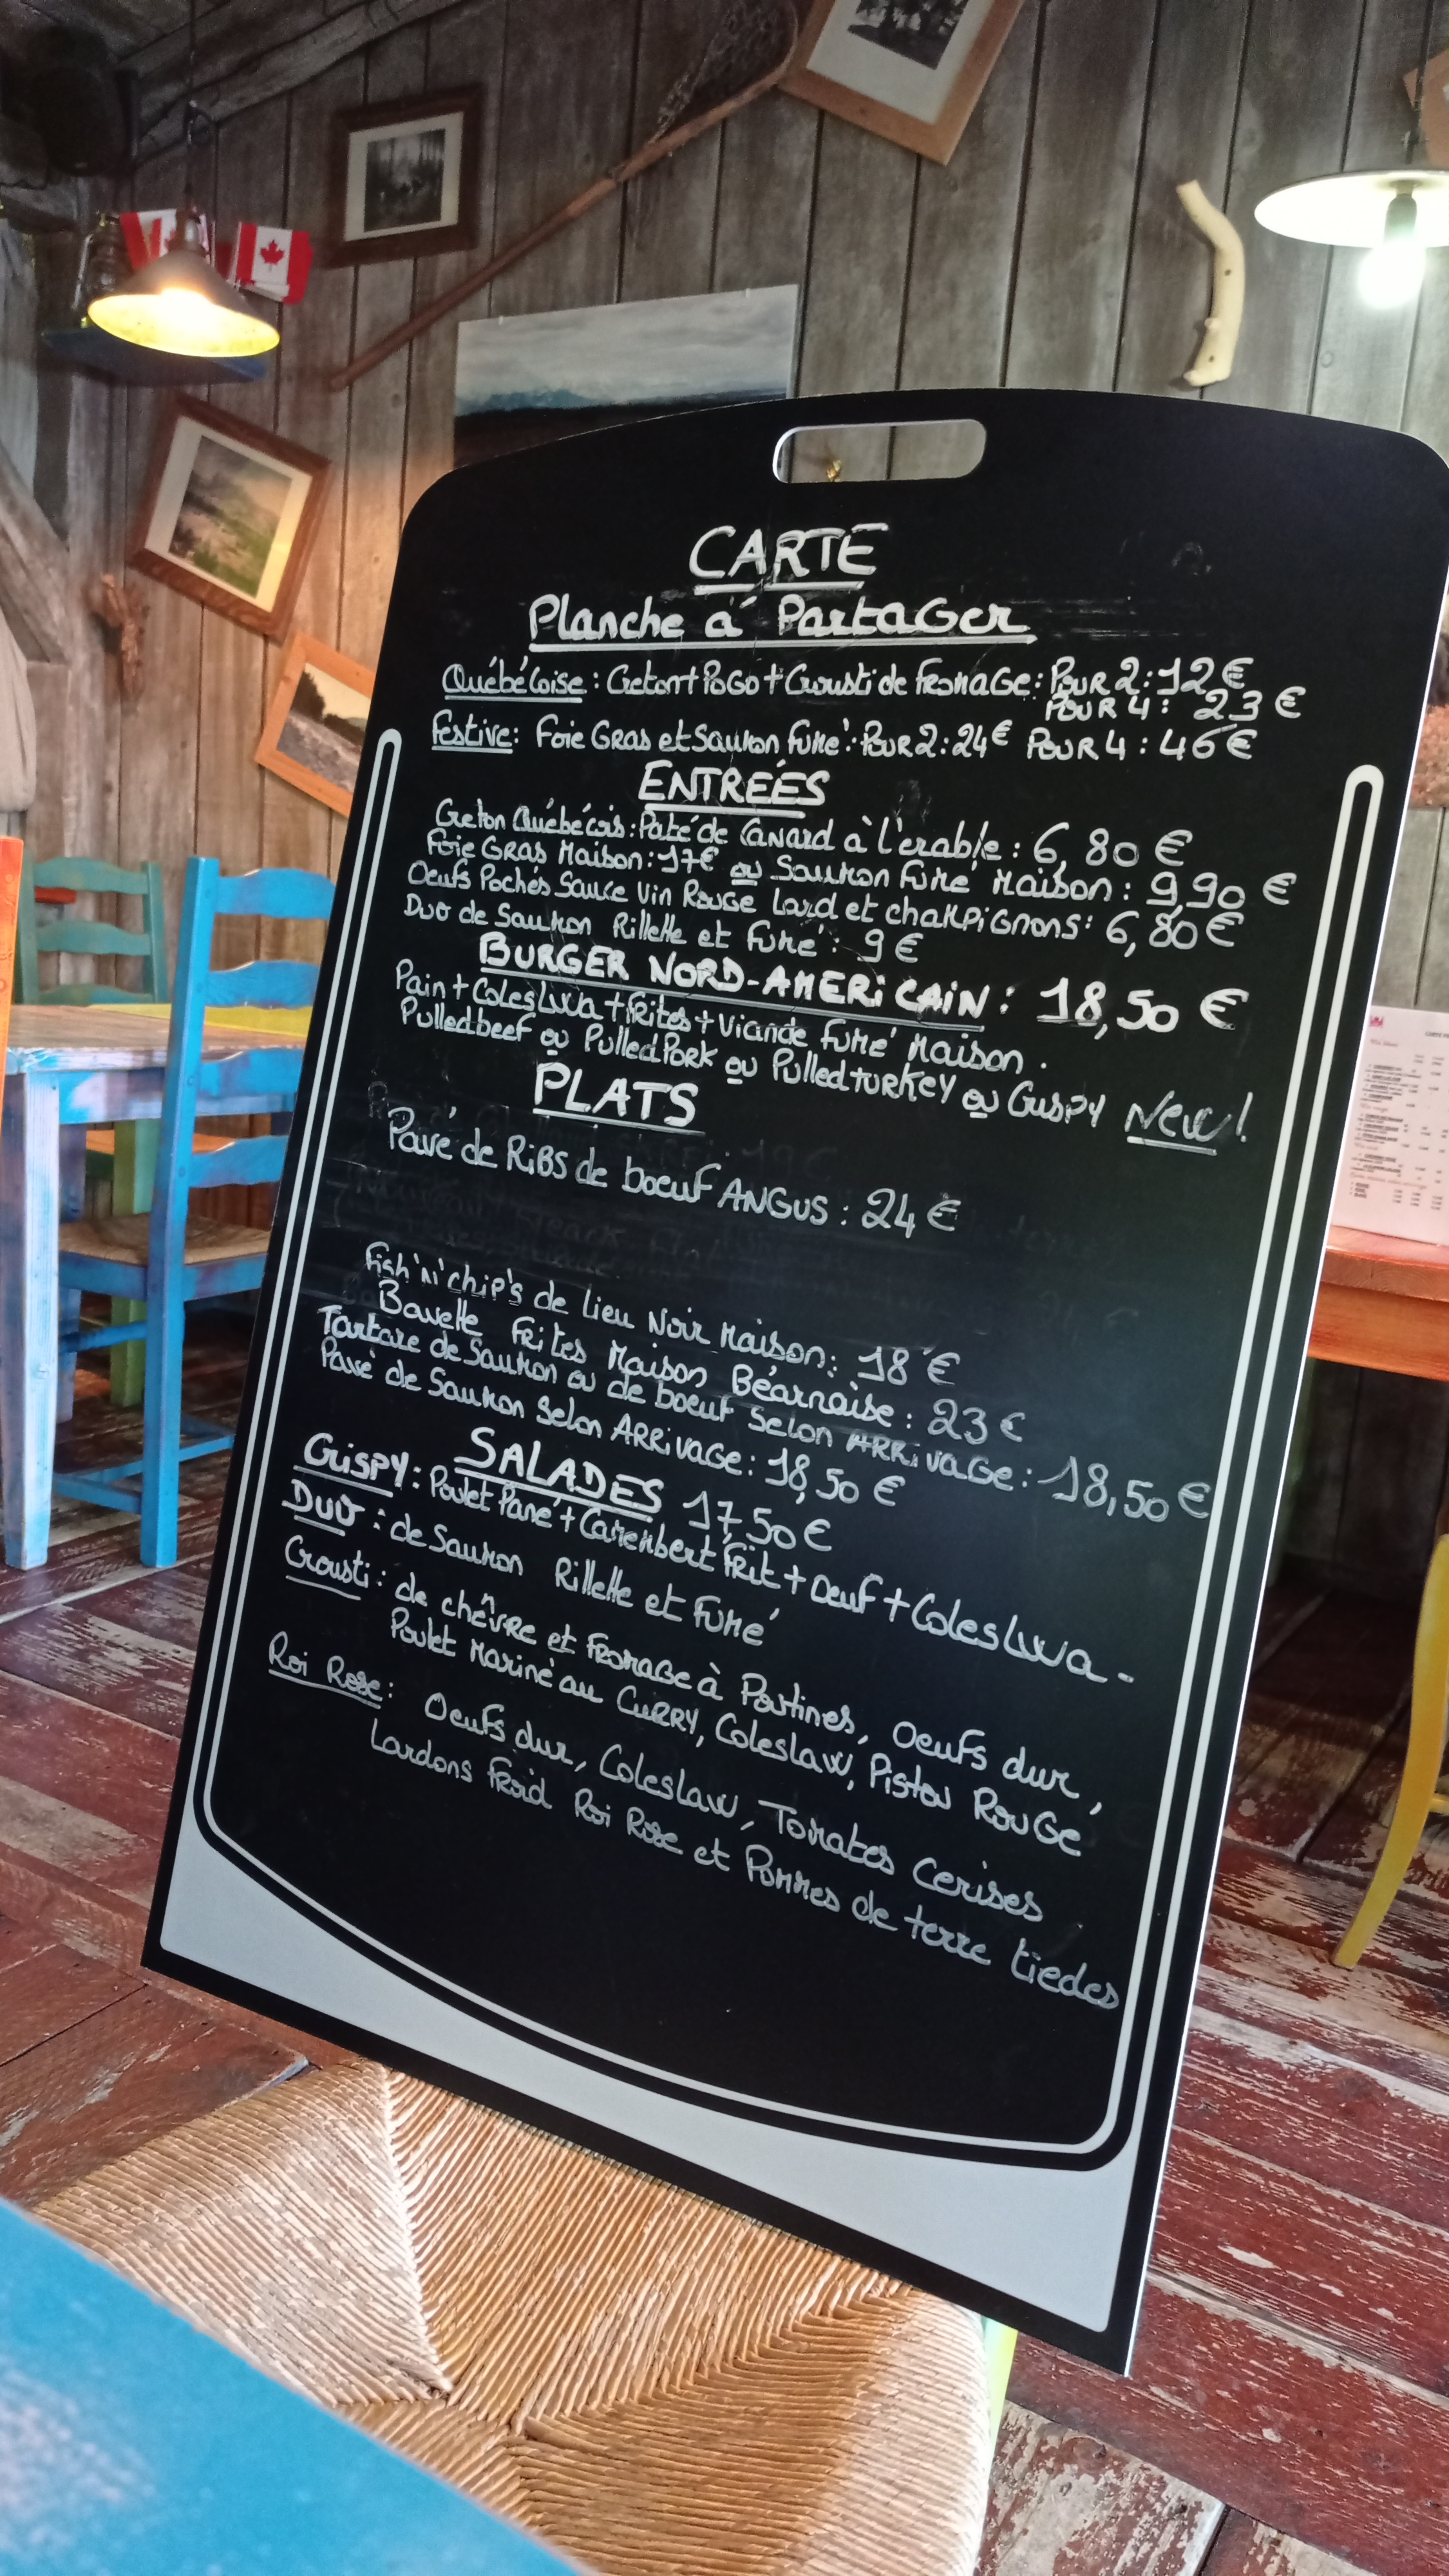 CARTE
Planche à Partager
Québécoise : Creton + Pogo + Crousti de Fromage : Pour 2 : 12 €
Pour 4 : 23 €
Festive : Foie Gras et Saumon Fumé : Pour 2 : 24 € Pour 4 : 46 €
ENTRÉES
Creton Québécois : Paté de Canard à l'érable : 6,80 €
Foie Gras Maison : 17 € ou Saumon Fumé Maison : 9,90 €
Oeufs Pochés Sauce Vin Rouge Lard et champignons : 6,80 €
Duo de Saumon Rillette et Fumé : 9 €
BURGER NORD-AMERICAIN : 18,50 €
Pain + Coleslwa + Frites + Viande Fumé Maison .
Pulled beef ou Pulled Pork ou Pulled turkey ou Crispy New !
PLATS
Pavé de Ribs de boeuf ANGUS : 24 €
Fish'N'chip's de Lieu Noir Maison : 18 €
Bavette Frites Maison Béarnaise : 23 €
Tartare de Saumon ou de boeuf Selon ARRivage : 18,50 €
Pavé de Saumon Selon ARRivage : 18,50 €
SALADES 17,50 €
Crispy : Poulet Pané + Camembert Frit + Oeuf + Coleslwa -
Duo : de Saumon Rillette et Fumé
Crousti : de chêvre et Fromage à Poutines, Oeufs dur,
Poulet Mariné au CURRY, Coleslaw, Pistou Rouge
Roi Rose : Oeufs dur, Coleslaw, Tomates Cerises
Lardons Froid Roi Rose et Pommes de terre tiedes